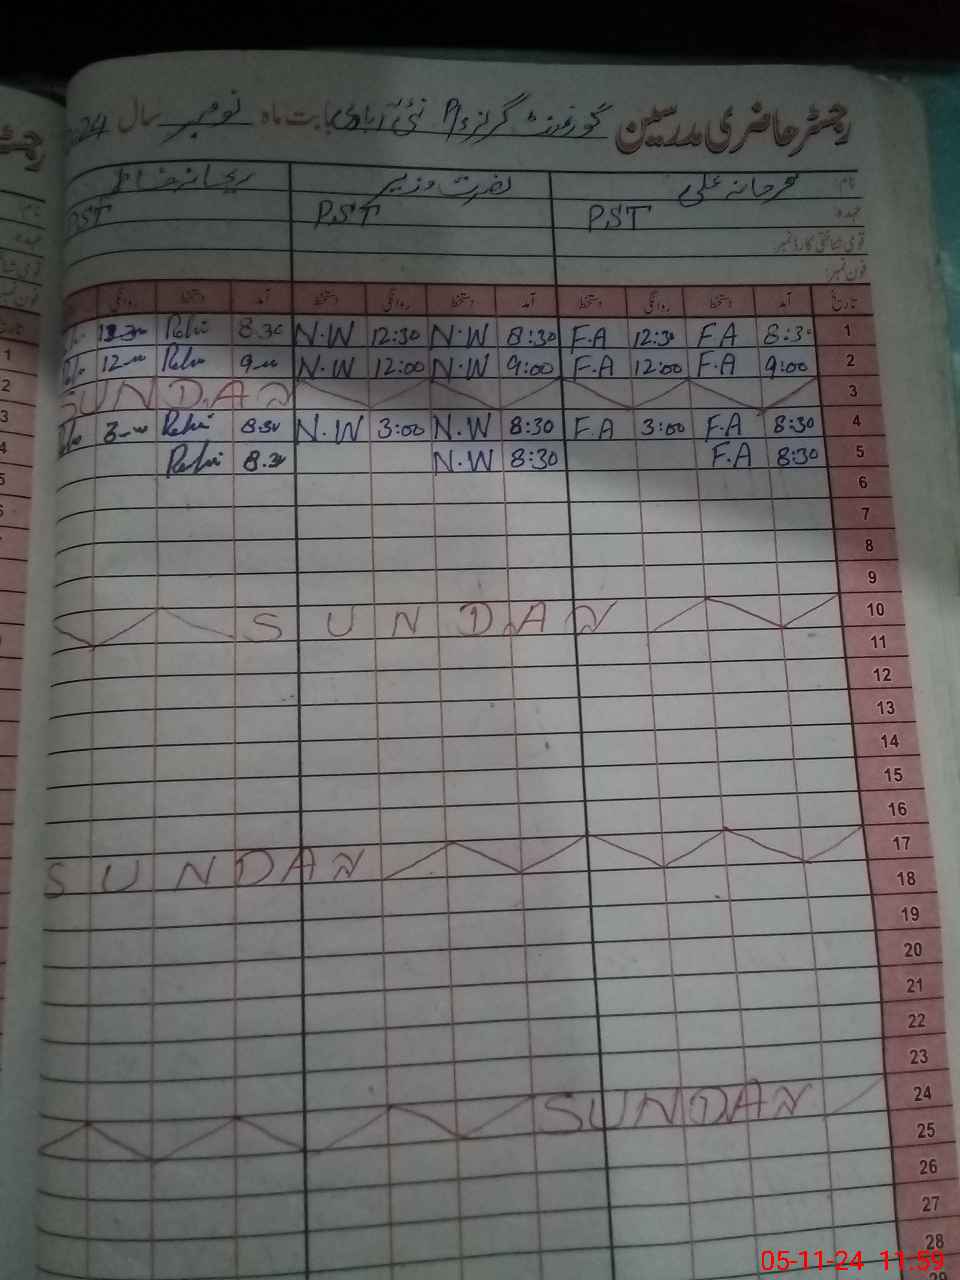 رجسٹر حاضری مدرسین گورنمنٹ گرلز P/S نئی آبادی بابت ماہ نومبر سال 24
نام: فرحانہ علی نصرت وزیر ریحانہ
عہدہ PST PST PST
قومی شناختی کارڈ نمبر:
فون نمبر:
تاریخ آمد دستخط روانگی دستخط آمد دستخط روانگی دستخط آمد دستخط روانگی
1 8:30 F.A 12:30 F.A 8:30 N.W 12:30 N.W 8.30 Rehi 12.30
2 9:00 F.A 12:00 F.A 9:00 N.W 12:00 N.W 9 Rehi 12
3 SUNDAY
4 8:30 F.A 3:00 F.A 8:30 N.W 3:00 N.W 8.30 Rehi 3
5 8:30 F.A 8:30 N.W 8.30 Rehi
6
7
8
9
10 SUNDAY
11
12
13
14
15
16
17 SUNDAY
18
19
20
21
22
23
24 SUNDAY
25
26
27
28
29
05-11-24 11:59